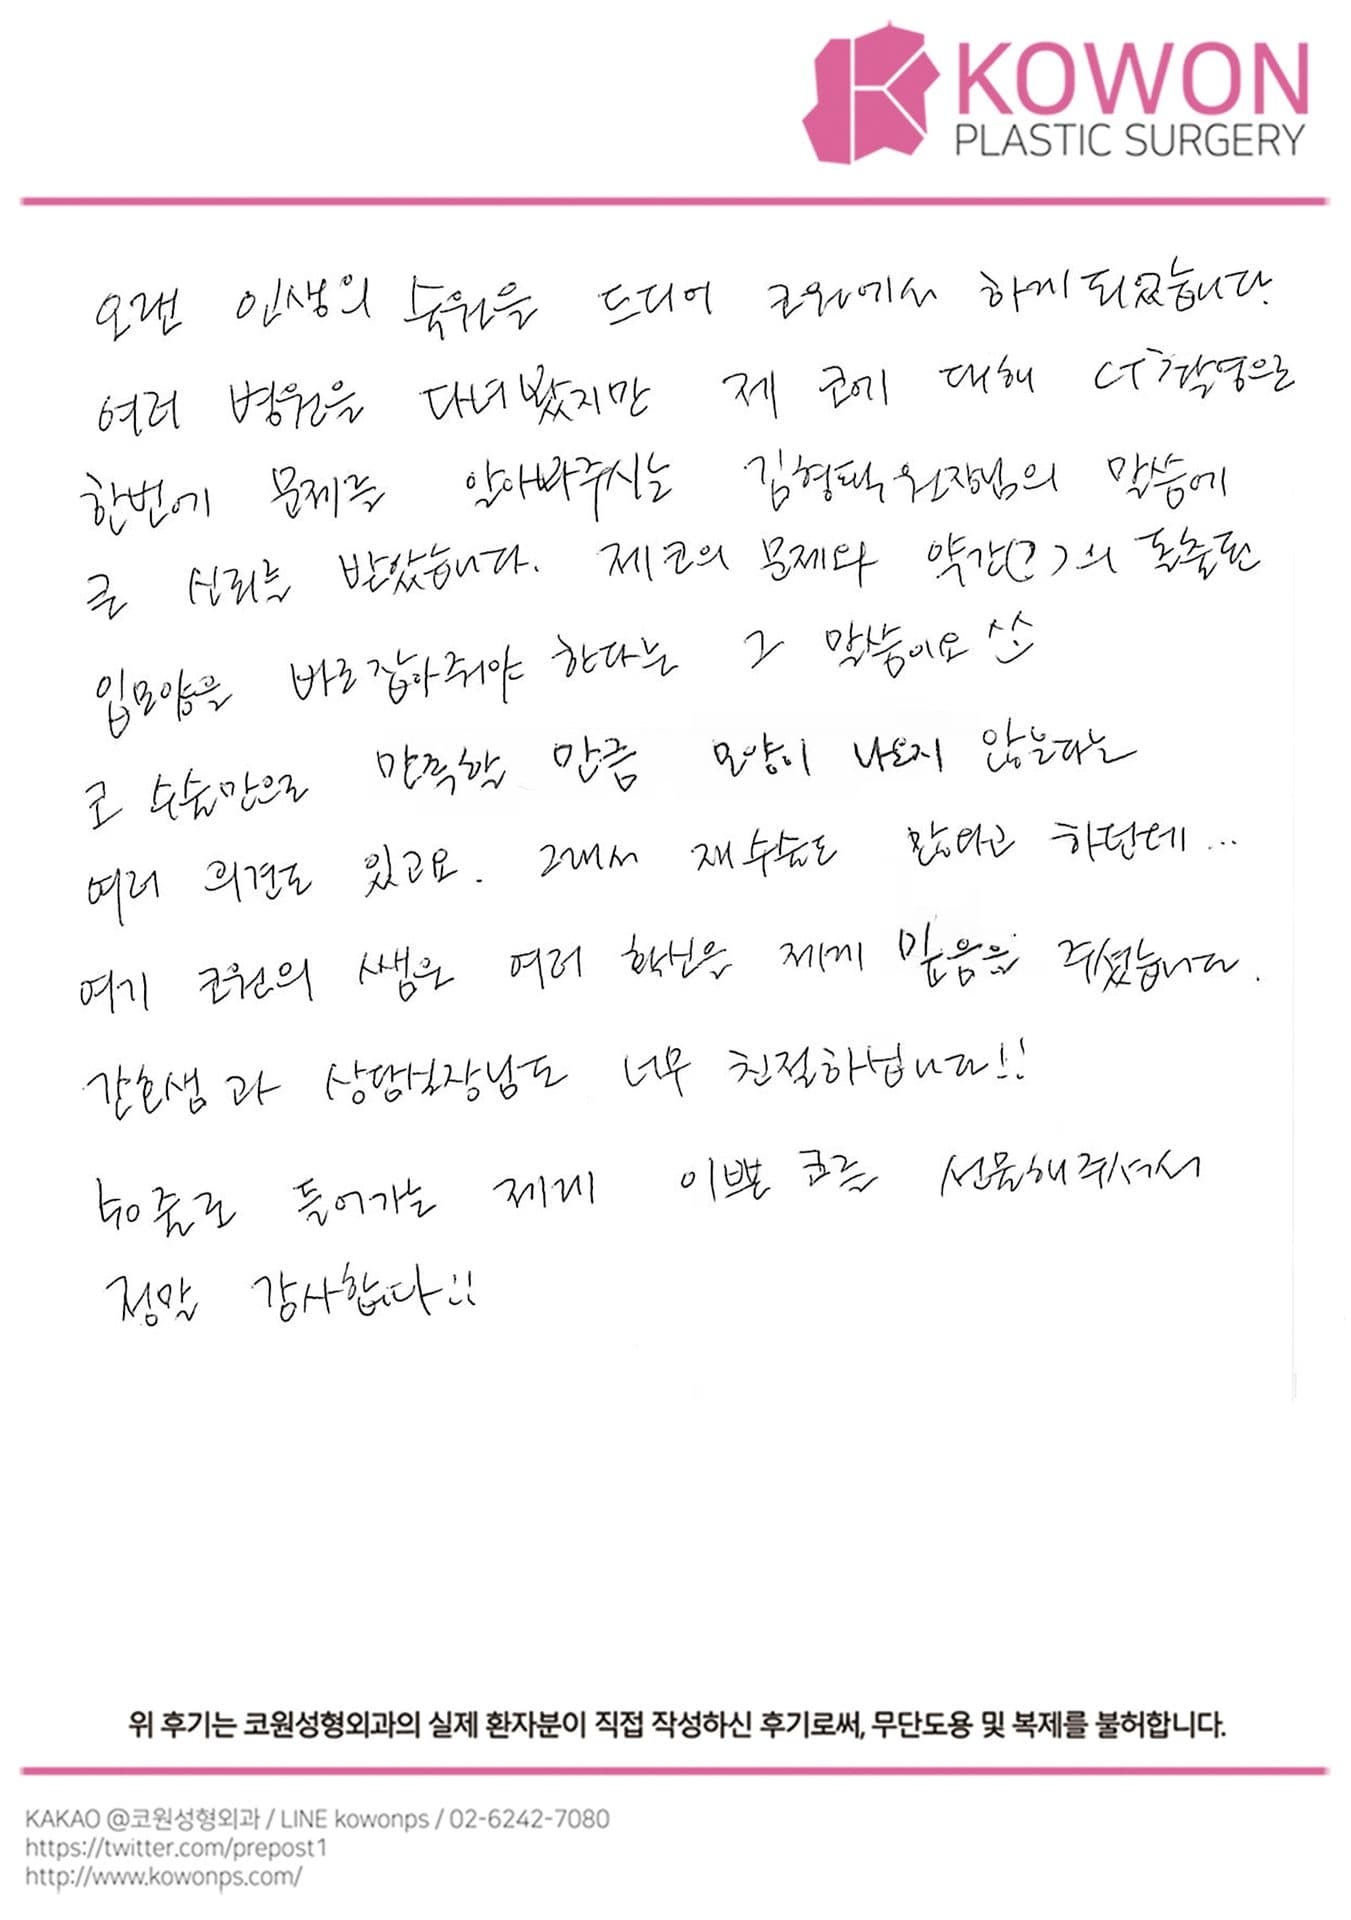 KOWON
PLASTIC SURGERY
오랜 인생의 숙원을 드디어 코원에서 하게되었습니다.
여러 병원을 다녀봤지만 제 코에 대해 CT촬영으로
한번에 문제를 알아봐주시는 김형택원장님의 말씀에
큰 신뢰를 받았습니다. 제코의 문제와 약간(?)의 돌출된
입모양을 바로잡아줘야 한다는 그 말씀이요 ^^
코 수술만으로 만족할 만큼 모양이 나오지 않는다는
여러 의견도 있고요. 그래서 재수술도 많다고 하던데...
여기 코원의 쌤은 여러 확신을 제게 믿음을 주셨습니다.
간호샘과 상담실장님도 너무 친절하십니다!!
40줄로 들어가는 제게 이쁜 코를 선물해주셔서
정말 감사합니다!!
위 후기는 코원성형외과의 실제 환자분이 직접 작성하신 후기로써, 무단도용 및 복제를 불허합니다.
KAKAO @코원성형외과 / LINE kowonps / 02-6242-7080
https://twitter.com/prepost1
http://www.kowonps.com/